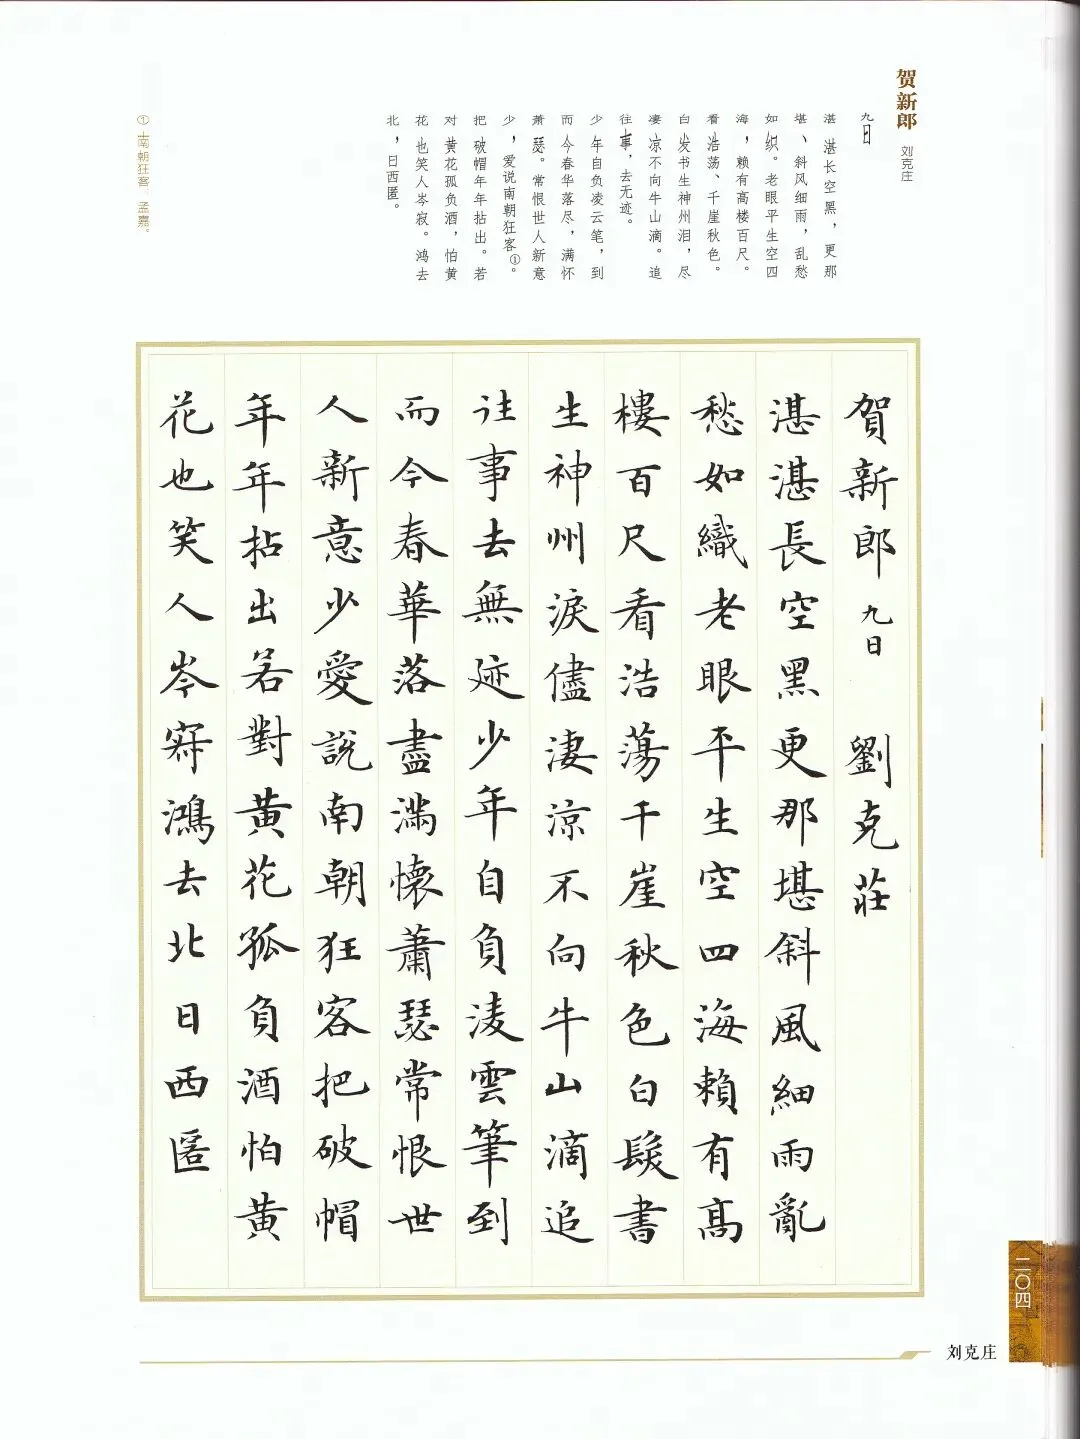 贺新郎
刘克庄
九日
湛湛长空黑，更那
堪、斜风细雨，乱愁
如织。老眼平生空四
海，赖有高楼百尺。
看浩荡、千崖秋色。
白发书生神州泪，尽
凄凉不向牛山滴。追
往事，去无迹。
少年自负凌云笔，到
而今春华落尽，满怀
萧瑟。常恨世人新意
少，爱说南朝狂客①。
把破帽年年拈出。若
对黄花孤负酒，怕黄
花也笑人岑寂。鸿去
北，日西匿。
①南朝狂客：孟嘉。
賀新郎 九日 劉克莊
湛湛長空黑更那堪斜風細雨亂
愁如織老眼平生空四海賴有高
樓百尺看浩蕩千崖秋色白髮書
生神州淚儘凄涼不向牛山滴追
往事去無迹少年自負凌雲筆到
而今春華落盡滿懷蕭瑟常恨世
人新意少愛說南朝狂客把破帽
年年拈出若對黄花孤負酒怕黄
花也笑人岑寂鴻去北日西匿
二〇四
刘克庄